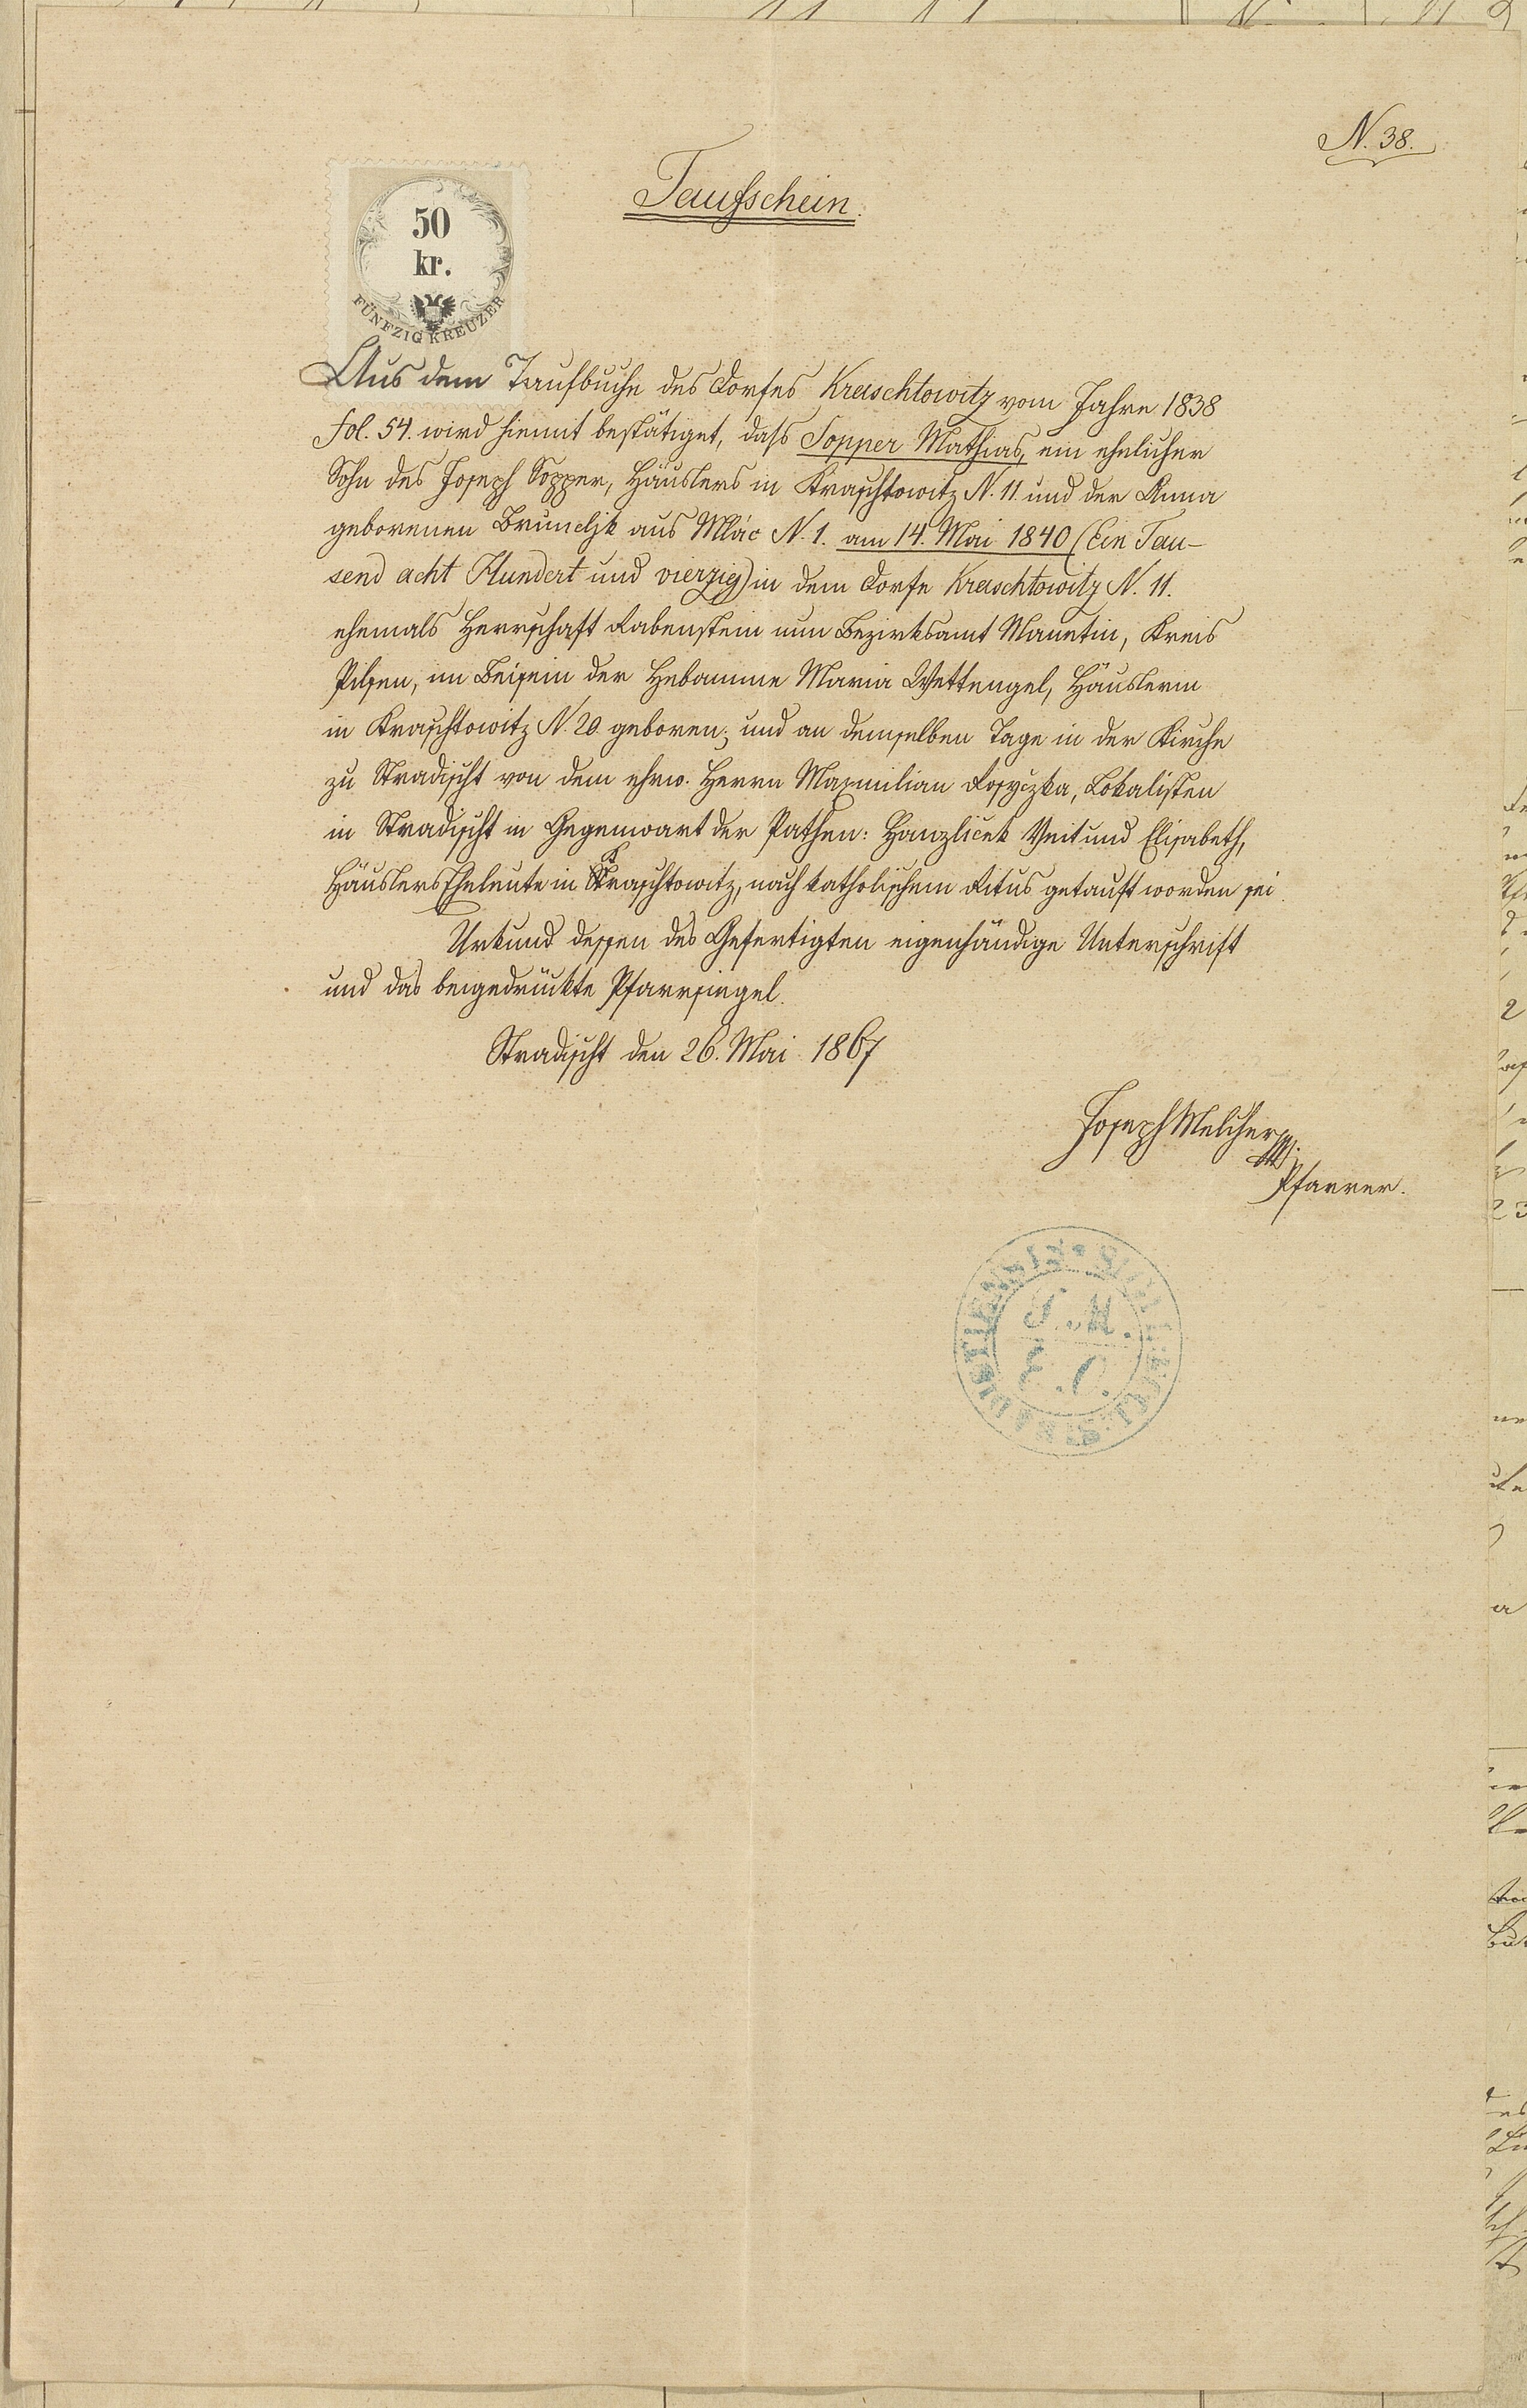 N. 38.
Taufschein.
50
kr.
FÜNFZIG KREUZER
Aus dem Taufbuche des Dorfes Kraschtowitz vom Jahre 1838
fol. 54. wird hiemit bestätiget, dass Sopper Mathias, ein ehelicher
Sohn des Joseph Sopper, Häuslers in Kraschtowitz N. 11 und der Anna
geborenen Bruncljk aus Mlác N. 1. am 14. Mai 1840 (Ein Tau-
send acht Hundert und vierzig) in dem Dorfe Kraschtowitz N. 11.
ehemals Herrschaft Rabenstein nun Bezirksamt Manetin, Kreis
Pilsen, im Beisein der Hebamme Maria Wettengel, Häuslerin
in Kraschtowitz N. 20 geboren; und an demselben Tage in der Kirche
zu Stradischt von dem ehrw. Herrn Maxmilian Rosyczka, Lokalisten
in Stradischt in Gegenwart der Pathen: Hanzlíček Veit und Elisabeth,
Häuslers Eheleute in Kraschtowitz, nach katholischem Ritus getauft worden sei.
Urkund dessen des Gefertigten eigenhändige Unterschrift
und das beigedrückte Pfarrsiegel.
Stradischt den 26. Mai 1867
Joseph Melicher
Pfarrer.